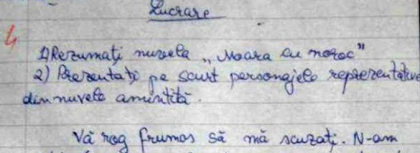 Lucrare
4
1) Rezumați nuvela „Moara cu noroc"
2) Prezentați pe scurt personajele reprezentative
din nuvela amintită.
Vă rog frumos să mă scuzați. N-am